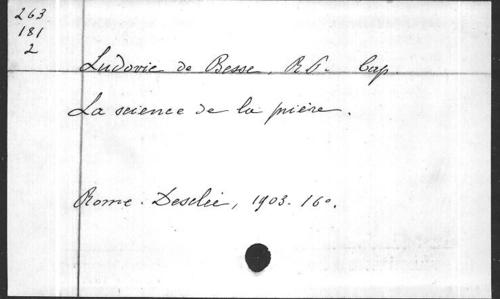 263
181
2
Ludovic de Besse, R.P. Cap.
La science de la prière.
Rome. Desclée, 1903. 16o.